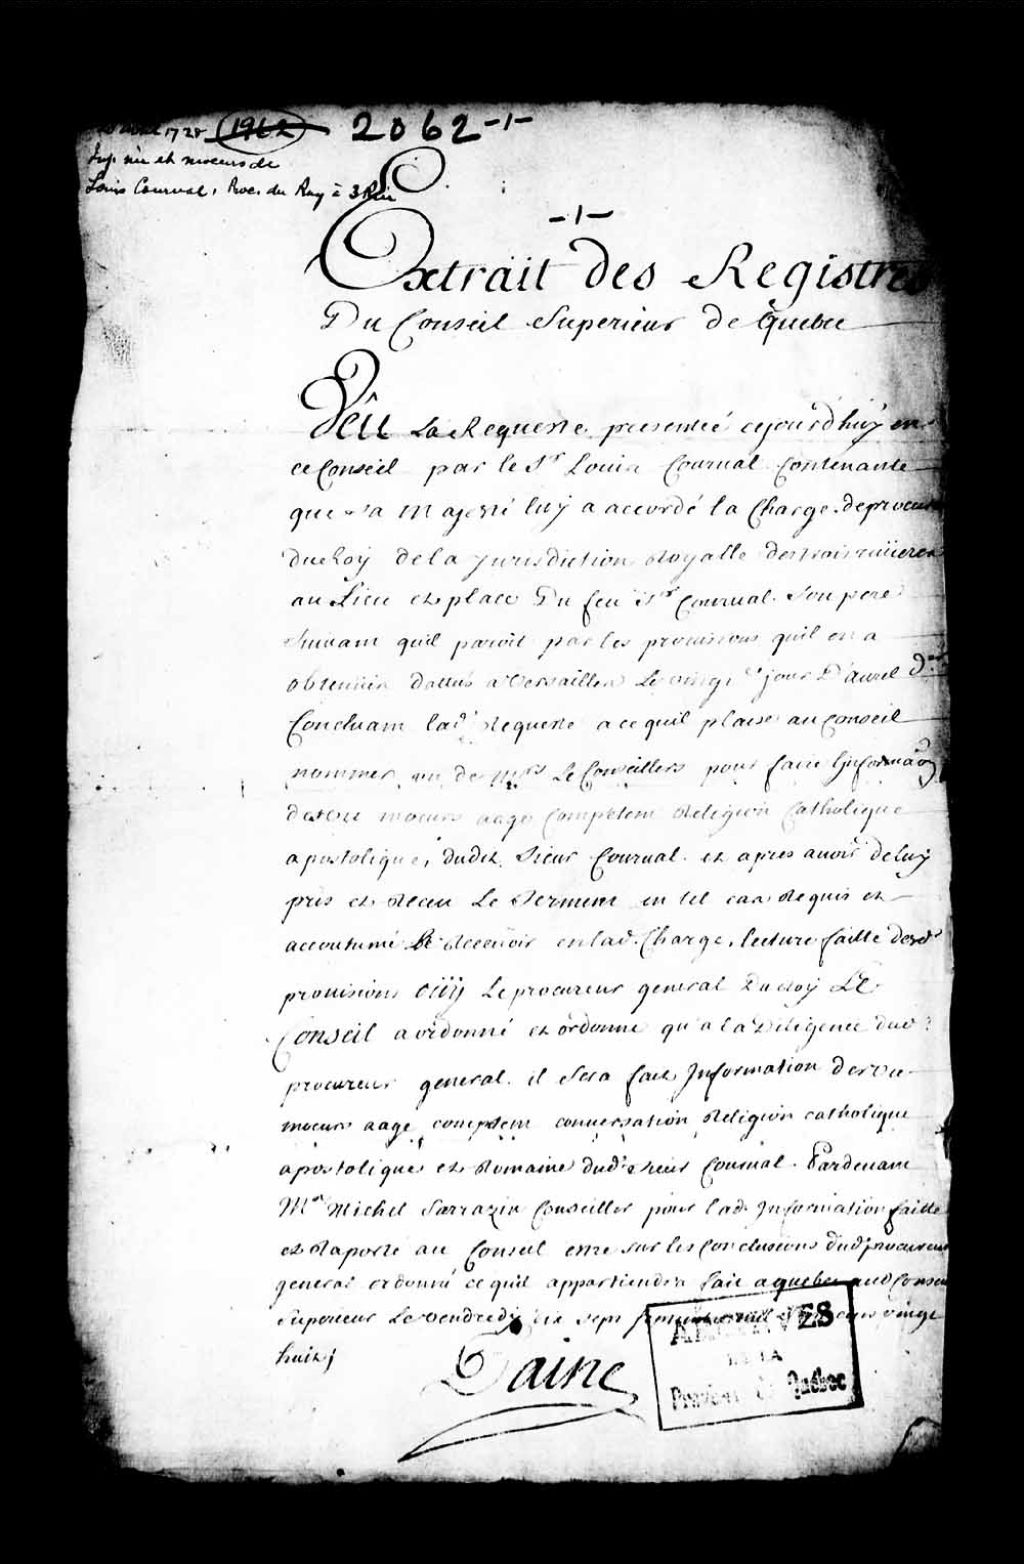 avril 1728 1962 2062 -1-
Inf. vie et moeurs de
Louis Courval, Proc. du Roy à 3 Riv
-1-
Extrait des Registres
Du Conseil Superieur de Quebec
Veu La Requeste presentée cejourd'huy en
ce Conseil par le Sr Louis Courval Contenante
que sa Majesté luy a accordé la Charge de procureur
du Roy de la Jurisdiction Royalle des trois rivieres
au Lieu et place Du feu Sr Courval Son pere
Suivant quil paroit par les provisions quil en a
obtenües dattés a Versailles Le vingt jour D'avril Der
Concluant lad. Requeste a ce quil plaise au Conseil
nommer un de Mrs Le Conseillers pour faire Informaon
de vie moeurs aage Competent Religion Catholique
apostolique, dudit Sieur Courval et apres avoir de luy
pris et Receu Le Serment en tel cas Requis et
accoutumé Le Recevoir en lad. Charge, lecture faitte desd.
provisions Oüy Le procureur general Du Roy Le
Conseil a ordonné et ordonne qu'a la Diligence dud.
procureur general il Sera fait Information de vie
moeurs aage competent conversation Religion catholique
apostolique et Romaine dud. Sieur Courval Pardevant
Me Michel Sarrazin Conseiller pour lad. Information faitte
et Raporté au Conseil estre sur les Conclusions dud. procureur
general ordonné ce quil appartiendra fait a quebec aud. Conseil
Superieur Le vendredy dix sept mil sept cens vingt
huit,
Daine
ARCHIVES
DE LA
Province de Québec